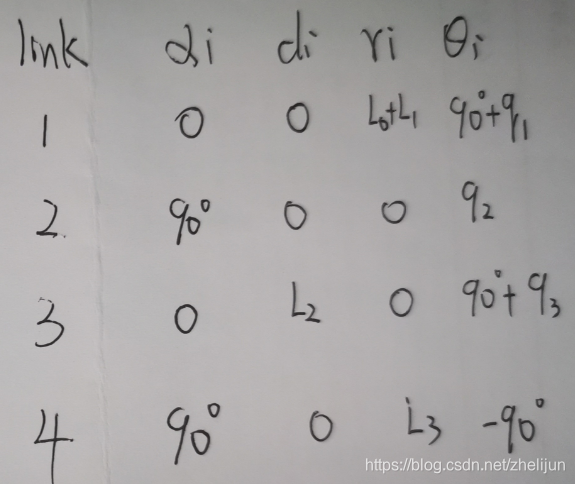 link αi di ri θi
1 0 0 L0+L1 90°+q1
2 90° 0 0 q2
3 0 L2 0 90°+q3
4 90° 0 L3 -90°
https://blog.csdn.net/zhelijun